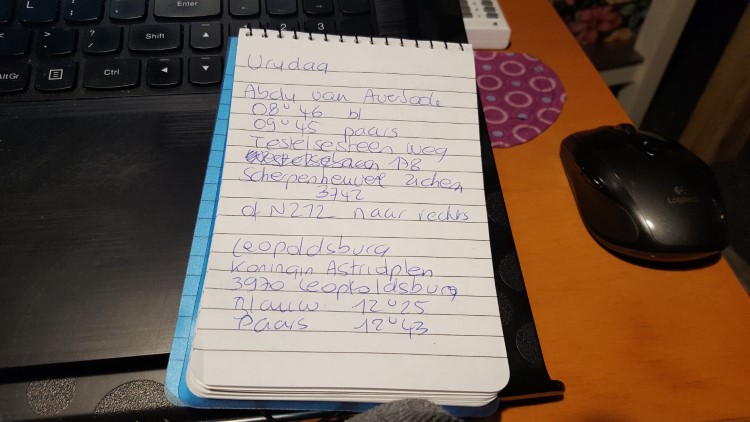 Vrydag
Abdy van Averbode
08u46 bl
09u45 paars
Testelsesteen weg
178
Scherpenheuvel Zichen
3742
of N212 naar rechts
Leopoldsburg
Koningin Astridplen
3970 Leopoldsburg
Blauw 12u25
Paars 12u43
1 2 3
Shift
AltGr
Ctrl
Logitech